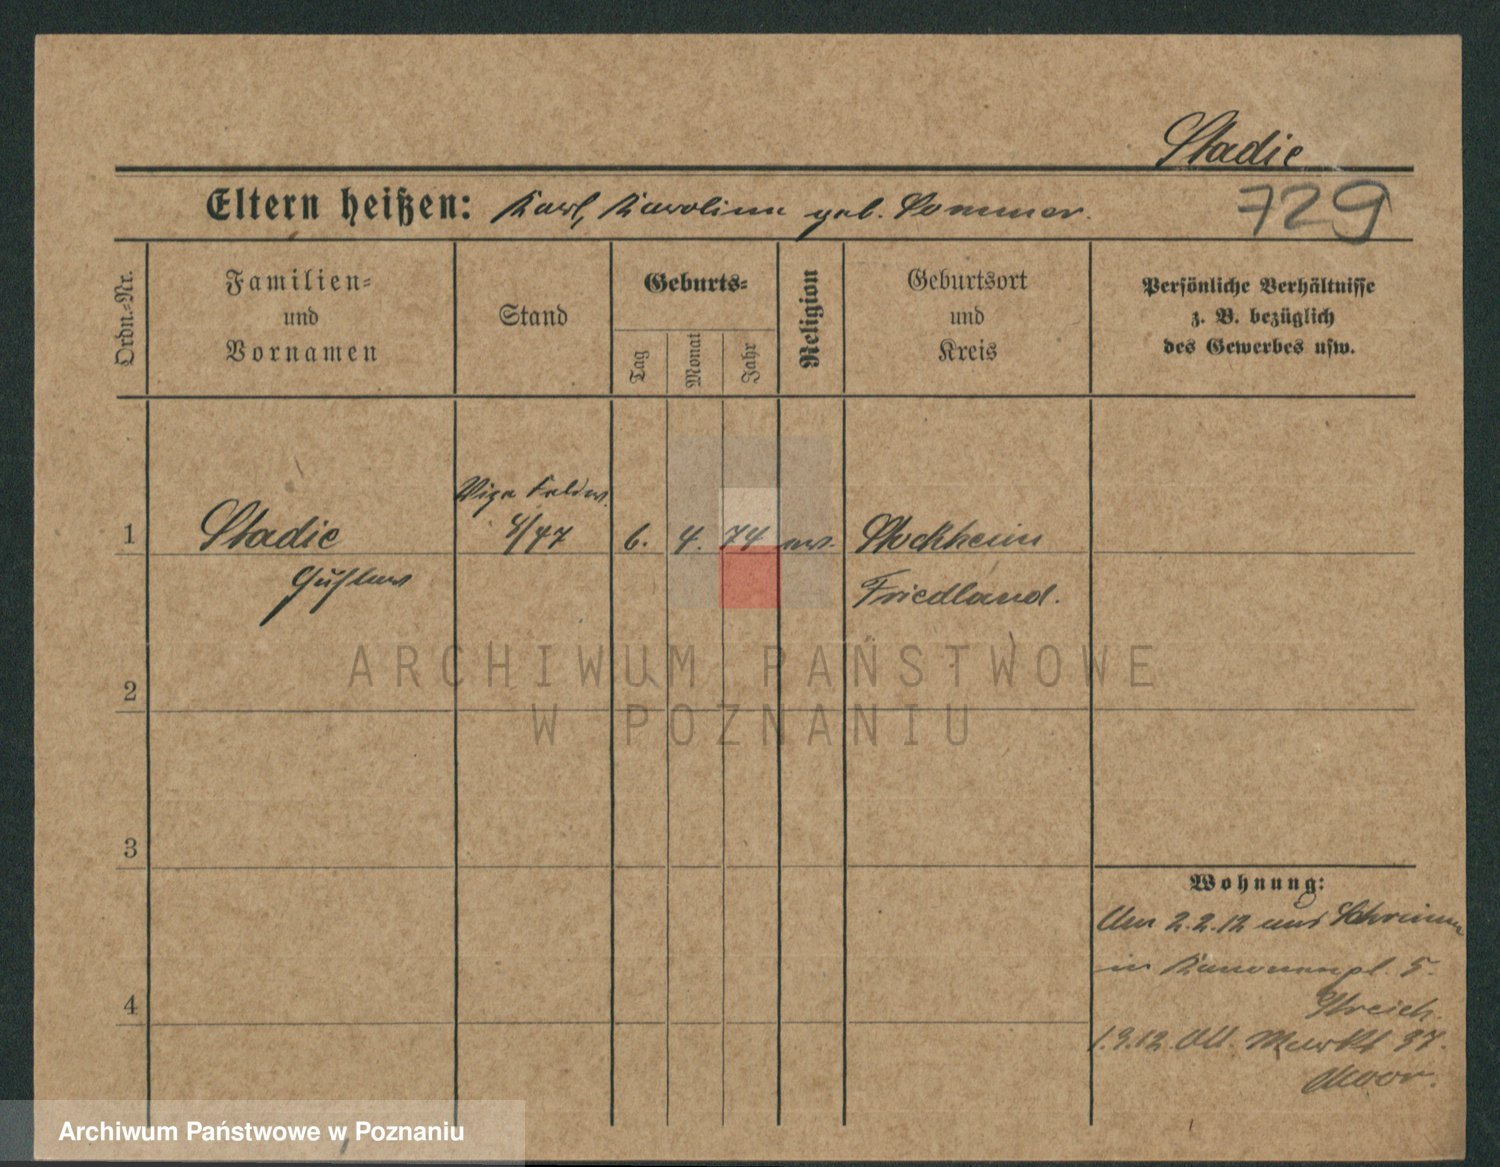 Stadie
Eltern heißen: Karl, Karoline geb. Sommer.
729
Ordn.-Nr.
Familien-
und
Vornamen
Stand
Geburts-
Tag
Monat
Jahr
Religion
Geburtsort
und
Kreis
Persönliche Verhältnisse
z. B. bezüglich
des Gewerbes usw.
Vize Feldw.
1 Stadie 4/47 6. 4. 74 ev. Stockheim
Gustav Friedland.
ARCHIWUM PAŃSTWOWE
W POZNANIU
2
3
Wohnung:
Am 2.2.12 aus Schrimm
in Kanonenpl. 5.
4
1.9.12. Alt. Markt 37.
Archiwum Państwowe w Poznaniu